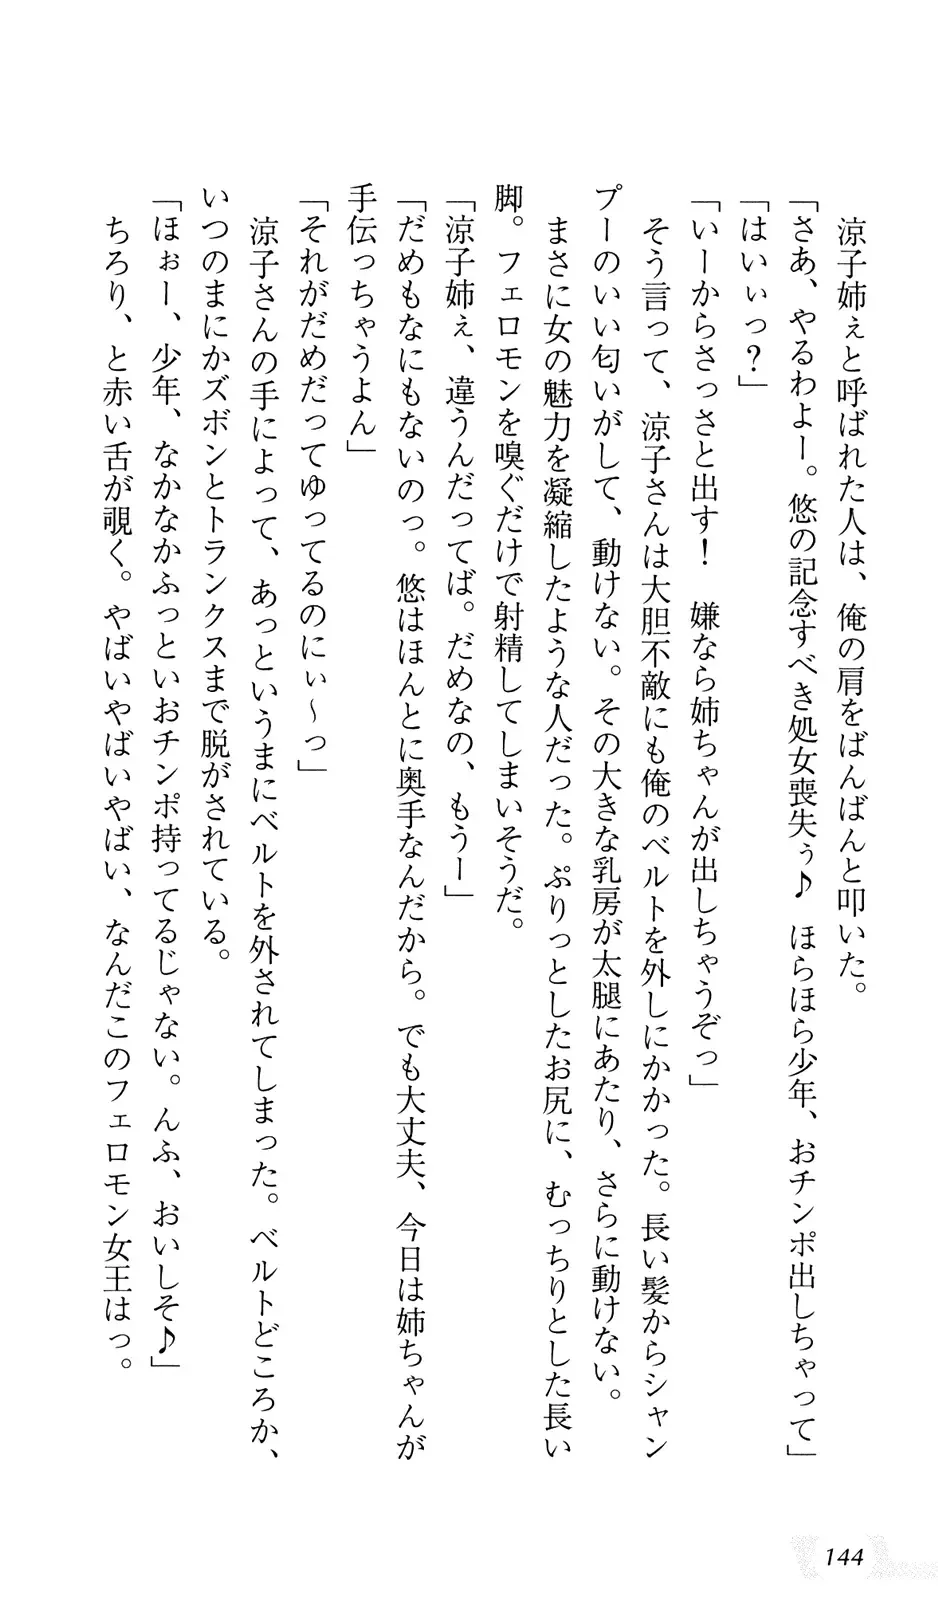 涼子姉ぇと呼ばれた人は、俺の肩をばんばんと叩いた。
「さあ、やるわよー。悠の記念すべき処女喪失ぅ♪　ほらほら少年、おチンポ出しちゃって」
「はいぃっ？」
「いーからさっさと出す！　嫌なら姉ちゃんが出しちゃうぞっ」
そう言って、涼子さんは大胆不敵にも俺のベルトを外しにかかった。長い髪からシャン
プーのいい匂いがして、動けない。その大きな乳房が太腿にあたり、さらに動けない。
まさに女の魅力を凝縮したような人だった。ぷりっとしたお尻に、むっちりとした長い
脚。フェロモンを嗅ぐだけで射精してしまいそうだ。
「涼子姉ぇ、違うんだってば。だめなの、もうー」
「だめもなにもないのっ。悠はほんとに奥手なんだから。でも大丈夫、今日は姉ちゃんが
手伝っちゃうよん」
「それがだめだってゆってるのにぃ～っ」
涼子さんの手によって、あっというまにベルトを外されてしまった。ベルトどころか、
いつのまにかズボンとトランクスまで脱がされている。
「ほぉー、少年、なかなかふっといおチンポ持ってるじゃない。んふ、おいしそ♪」
ちろり、と赤い舌が覗く。やばいやばいやばい、なんだこのフェロモン女王はっ。
144